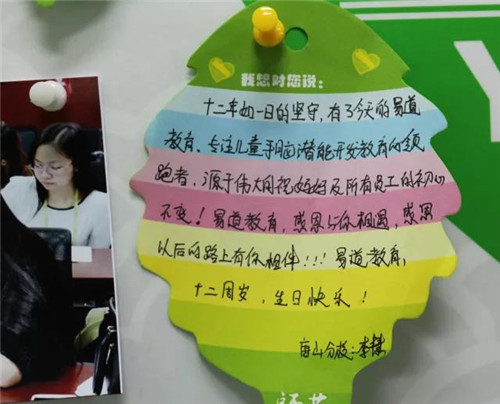 我想对您说：
十二年如一日的坚守，有了今天的易道
教育、专注儿童手脑潜能开发教育的领
跑者，源于伟大的祝妈妈及所有员工的初心
不变！易道教育，感恩与你相遇，感恩
以后的路上有你相伴！！！易道教育，
十二周岁，生日快乐！
唐山分校：李
Y